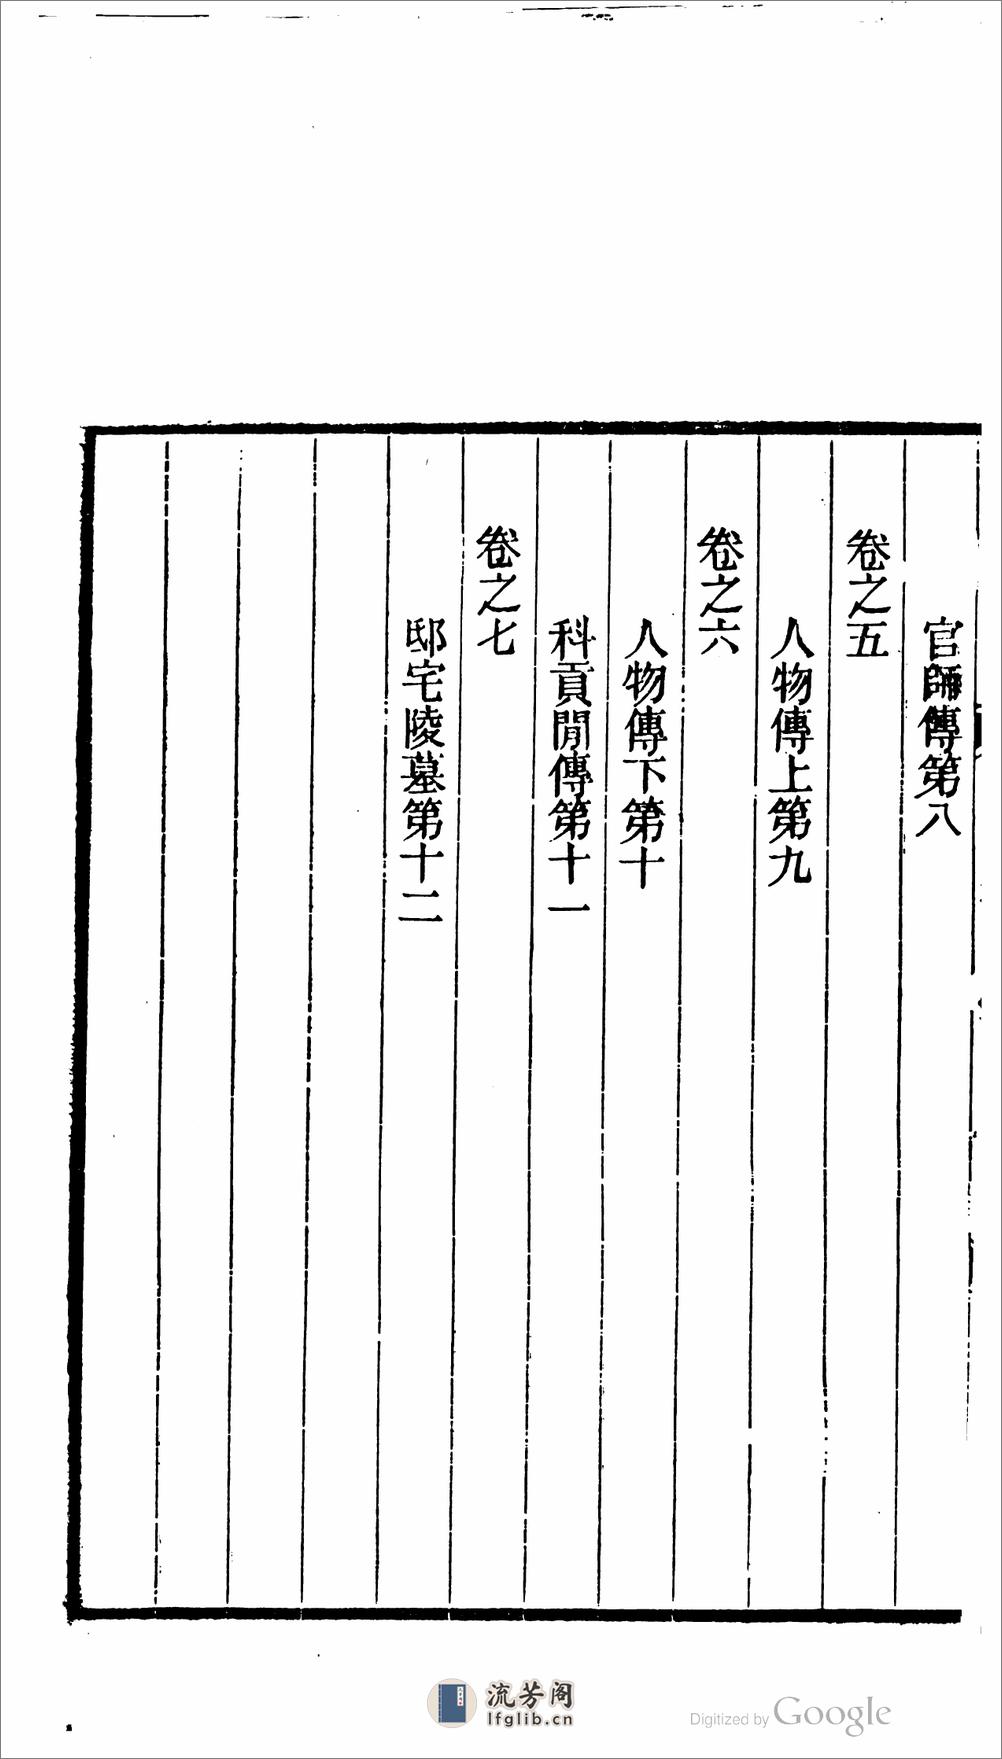 官師傳第八
卷之五
人物傳上第九
卷之六
人物傳下第十
科貢閒傳第十一
卷之七
邸宅陵墓第十二
流芳阁
lfglib.cn
Digitized by Google